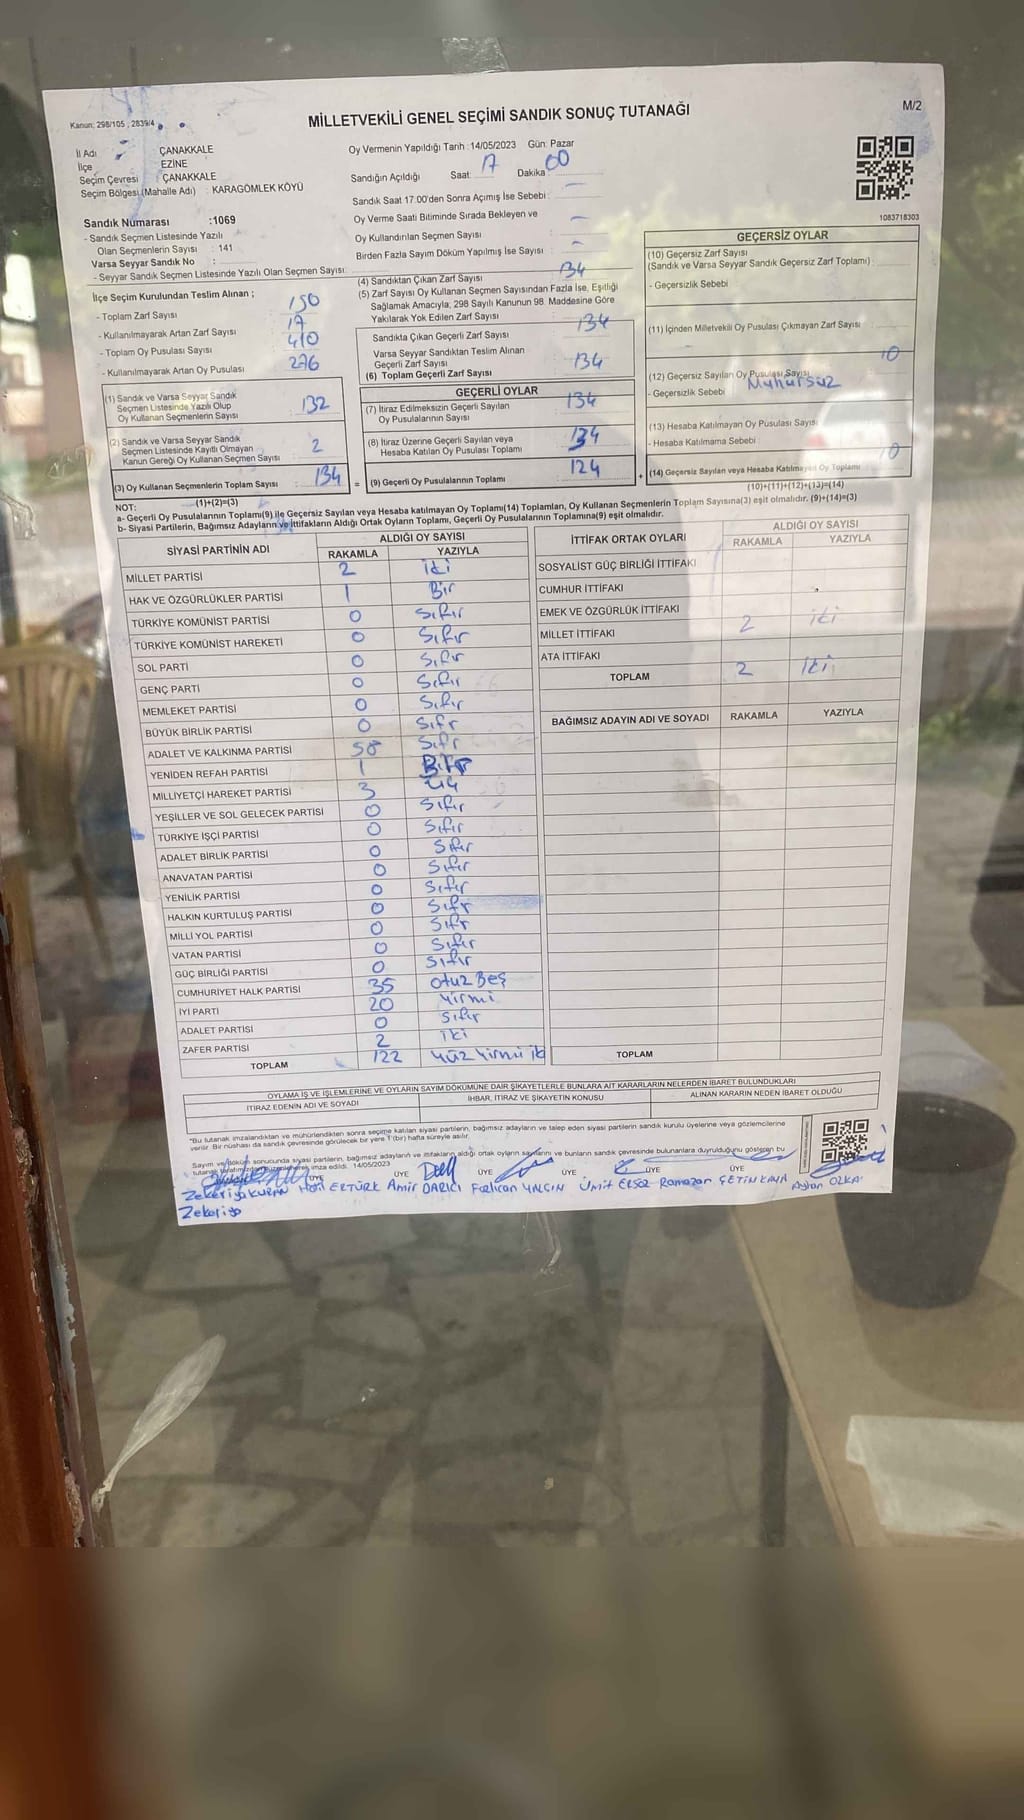 Kanun; 298/105 ; 2839/4
MİLLETVEKİLİ GENEL SEÇİMİ SANDIK SONUÇ TUTANAĞI
M/2
İl Adı : ÇANAKKALE
İlçe : EZİNE
Seçim Çevresi : ÇANAKKALE
Seçim Bölgesi (Mahalle Adı) : KARAGÖMLEK KÖYÜ
Oy Vermenin Yapıldığı Tarih : 14/05/2023 Gün: Pazar
Sandığın Açıldığı Saat: 17 Dakika: 00
Sandık Saat 17:00'den Sonra Açımış İse Sebebi : -
Oy Verme Saati Bitiminde Sırada Bekleyen ve
Oy Kullandırılan Seçmen Sayısı -
Birden Fazla Sayım Döküm Yapılmış İse Sayısı : -
1083718303
Sandık Numarası :1069
- Sandık Seçmen Listesinde Yazılı
Olan Seçmenlerin Sayısı : 141
Varsa Seyyar Sandık No :
- Seyyar Sandık Seçmen Listesinde Yazılı Olan Seçmen Sayısı:
İlçe Seçim Kurulundan Teslim Alınan ;
- Toplam Zarf Sayısı : 150
- Kullanılmayarak Artan Zarf Sayısı : 17
- Toplam Oy Pusulası Sayısı : 410
- Kullanılmayarak Artan Oy Pusulası : 276
(1) Sandık ve Varsa Seyyar Sandık
Seçmen Listesinde Yazılı Olup
Oy Kullanan Seçmenlerin Sayısı : 132
(2) Sandık ve Varsa Seyyar Sandık
Seçmen Listesinde Kayıtlı Olmayan
Kanun Gereği Oy Kullanan Seçmen Sayısı : 2
(3) Oy Kullanan Seçmenlerin Toplam Sayısı : 134
(1)+(2)=(3)
(4) Sandıktan Çıkan Zarf Sayısı : 134
(5) Zarf Sayısı Oy Kullanan Seçmen Sayısından Fazla İse, Eşitliği
Sağlamak Amacıyla, 298 Sayılı Kanunun 98. Maddesine Göre
Yakılarak Yok Edilen Zarf Sayısı :
Sandıkta Çıkan Geçerli Zarf Sayısı : 134
Varsa Seyyar Sandıktan Teslim Alınan
Geçerli Zarf Sayısı :
(6) Toplam Geçerli Zarf Sayısı : 134
GEÇERLİ OYLAR
(7) İtiraz Edilmeksizin Geçerli Sayılan
Oy Pusulalarının Sayısı : 134
(8) İtiraz Üzerine Geçerli Sayılan veya
Hesaba Katılan Oy Pusulası Toplamı : 134
= (9) Geçerli Oy Pusulalarının Toplamı : 124
GEÇERSİZ OYLAR
(10) Geçersiz Zarf Sayısı
(Sandık ve Varsa Seyyar Sandık Geçersiz Zarf Toplamı) :
- Geçersizlik Sebebi :
(11) İçinden Milletvekili Oy Pusulası Çıkmayan Zarf Sayısı :
(12) Geçersiz Sayılan Oy Pusulası Sayısı : 10
- Geçersizlik Sebebi : Muhursuz
(13) Hesaba Katılmayan Oy Pusulası Sayısı :
- Hesaba Katılmama Sebebi :
+ (14) Geçersiz Sayılan veya Hesaba Katılmayan Oy Toplamı : 10
(10)+(11)+(12)+(13)=(14)
NOT:
a- Geçerli Oy Pusulalarının Toplamı(9) ile Geçersiz Sayılan veya Hesaba katılmayan Oy Toplamı(14) Toplamları, Oy Kullanan Seçmenlerin Toplam Sayısına(3) eşit olmalıdır. (9)+(14)=(3)
b- Siyasi Partilerin, Bağımsız Adayların ve İttifakların Aldığı Ortak Oyların Toplamı, Geçerli Oy Pusulalarının Toplamına(9) eşit olmalıdır.
SİYASİ PARTİNİN ADI ALDIĞI OY SAYISI
RAKAMLA YAZIYLA
MİLLET PARTİSİ 2 iki
HAK VE ÖZGÜRLÜKLER PARTİSİ 1 Bir
TÜRKİYE KOMÜNİST PARTİSİ 0 Sıfır
TÜRKİYE KOMÜNİST HAREKETİ 0 Sıfır
SOL PARTİ 0 Sıfır
GENÇ PARTİ 0 Sıfır
MEMLEKET PARTİSİ 0 Sıfır
BÜYÜK BİRLİK PARTİSİ 0 Sıfr
ADALET VE KALKINMA PARTİSİ 58 Sıfr
YENİDEN REFAH PARTİSİ 1 Bir
MİLLİYETÇİ HAREKET PARTİSİ 3 üç
YEŞİLLER VE SOL GELECEK PARTİSİ 0 Sıfır
TÜRKİYE İŞÇİ PARTİSİ 0 Sıfır
ADALET BİRLİK PARTİSİ 0 Sıfır
ANAVATAN PARTİSİ 0 Sıfır
YENİLİK PARTİSİ 0 Sıfır
HALKIN KURTULUŞ PARTİSİ 0 Sıfr
MİLLİ YOL PARTİSİ 0 Sıfr
VATAN PARTİSİ 0 Sıfır
GÜÇ BİRLİĞİ PARTİSİ 0 Sıfır
CUMHURİYET HALK PARTİSİ 35 Otuz Beş
İYİ PARTİ 20 Yirmi
ADALET PARTİSİ 0 Sıfır
ZAFER PARTİSİ 2 iki
TOPLAM 122 Yüz Yirmi iki
İTTİFAK ORTAK OYLARI ALDIĞI OY SAYISI
RAKAMLA YAZIYLA
SOSYALİST GÜÇ BİRLİĞİ İTTİFAKI
CUMHUR İTTİFAKI
EMEK VE ÖZGÜRLÜK İTTİFAKI
MİLLET İTTİFAKI 2 iki
ATA İTTİFAKI
TOPLAM 2 iki
BAĞIMSIZ ADAYIN ADI VE SOYADI RAKAMLA YAZIYLA
TOPLAM
OYLAMA İŞ VE İŞLEMLERİNE VE OYLARIN SAYIM DÖKÜMÜNE DAİR ŞİKAYETLERLE BUNLARA AİT KARARLARIN NELERDEN İBARET BULUNDUKLARI
İTİRAZ EDENİN ADI VE SOYADI İHBAR, İTİRAZ VE ŞİKAYETİN KONUSU ALINAN KARARIN NEDEN İBARET OLDUĞU
*Bu tutanak imzalandıktan ve mühürlendikten sonra seçime katılan siyasi partilerin, bağımsız adayların ve talep eden siyasi partilerin sandık kurulu üyelerine veya gözlemcilerine
verilir. Bir nüshası da sandık çevresinde görülecek bir yere 1 (bir) hafta süreyle asılır.
Sayım ve döküm sonucunda siyasi partilerin, bağımsız adayların ve ittifakların aldığı ortak oyların sayılarını ve bunların sandık çevresinde bulunanlara duyrulduğunu gösteren bu
tutanak tarafımızdan düzenlenerek imza edildi. 14/05/2023
ÜYE ÜYE ÜYE ÜYE ÜYE ÜYE
Zekeriya KURAN Halil ERTÜRK Amir DARICI Fazlıcan YALÇIN Ümit ERSÖZ Ramazan ÇETİNKAYA Ayhan
Zekeriya